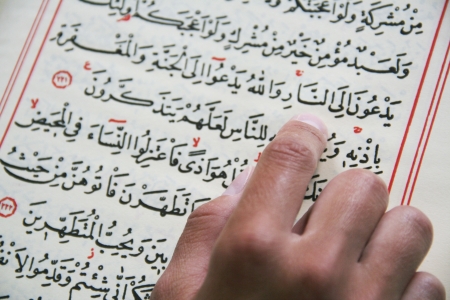 مِنْ مُشْرِكَةٍ وَلَوْ اَعْجَبَتْكُمْ
وَلَعَبْدٌ مُؤْمِنٌ خَيْرٌ مِنْ مُشْرِكٍ وَلَوْ اَعْجَبَكُمْ اُولٰٓئِكَ
يَدْعُونَ اِلَى النَّارِ وَاللّٰهُ يَدْعُٓوا اِلَى الْجَنَّةِ وَالْمَغْفِرَةِ
بِاِذْنِهٖ لِلنَّاسِ لَعَلَّهُمْ يَتَذَكَّرُونَ ٢٢١
هُوَ اَذًى فَاعْتَزِلُوا النِّسَٓاءَ فِي الْمَحٖيضِ
تَطَهَّرْنَ فَاْتُوهُنَّ مِنْ حَيْثُ
وَيُحِبُّ الْمُتَطَهِّرٖينَ ٢٢٢
اَنّٰى شِئْتُمْ وَقَدِّمُوا